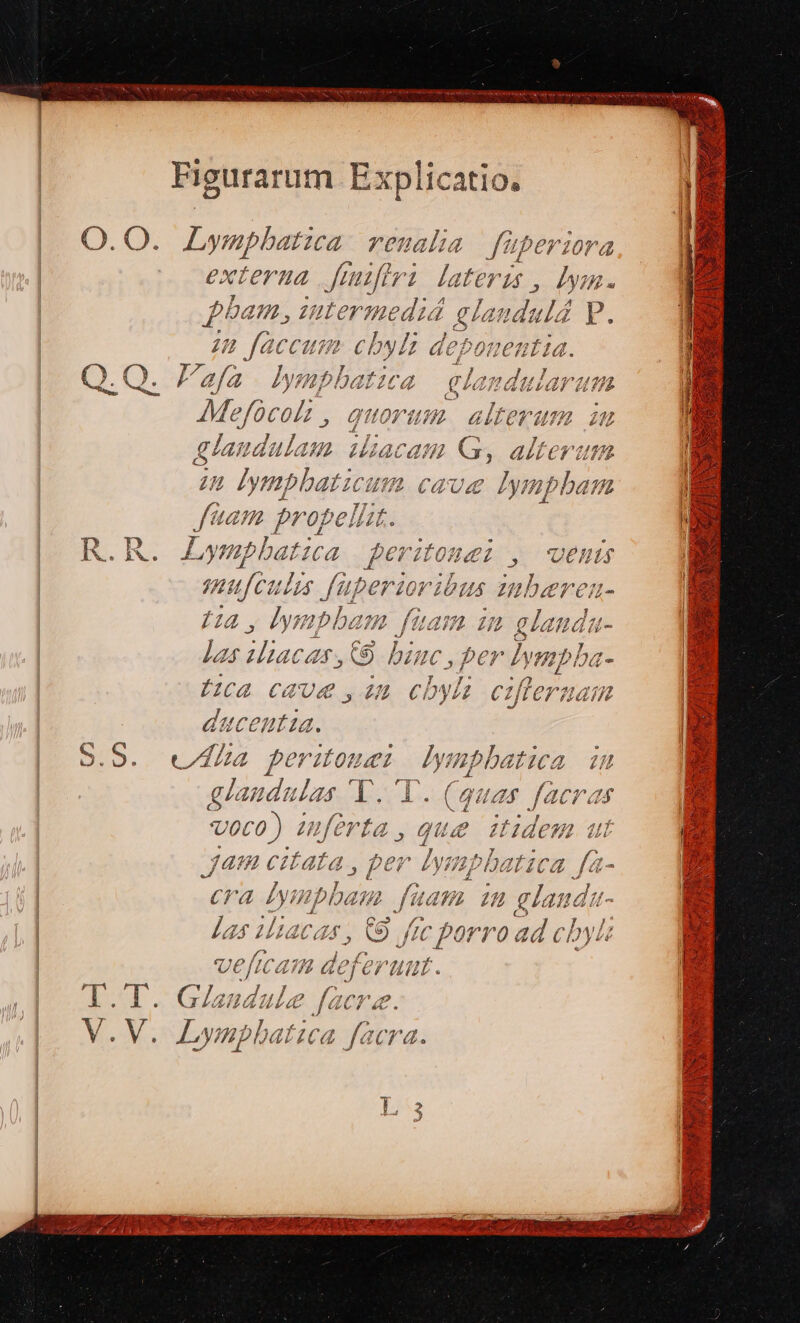 Figurarum Explicatio.
O.O. Lymphatica renalia ſuperiora
externa ſiniſtri lateris, lym-
pham, intermediâ glandulâ P.
in ſaccum chyli deponentia.
Q.Q. Vaſa lymphatica glandularum
Meſocoli, quorum alterum in
glandulam iliacam G, alterum
in lymphaticum cavæ lympham
ſuam propellit.
R.R. Lymphatica peritonæi, venis
muſculis ſuperioribus inhæren-
tia, lympham ſuam in glandu-
las iliacas, & hinc, per lympha-
tica cavæ, in chyli ciſternam
ducentia.
S.S. Alia peritonæi lymphatica in
glandulas T.T. (quas ſacras
voco) inſerta, quæ itidem ut
jam citata, per lymphatica ſa-
cra lympham ſuam in glandu-
las iliacas, & ſic porro ad chyli
veſicam deferunt.
T.T. Glandulæ ſacræ.
V.V. Lymphatica ſacra.
L 3